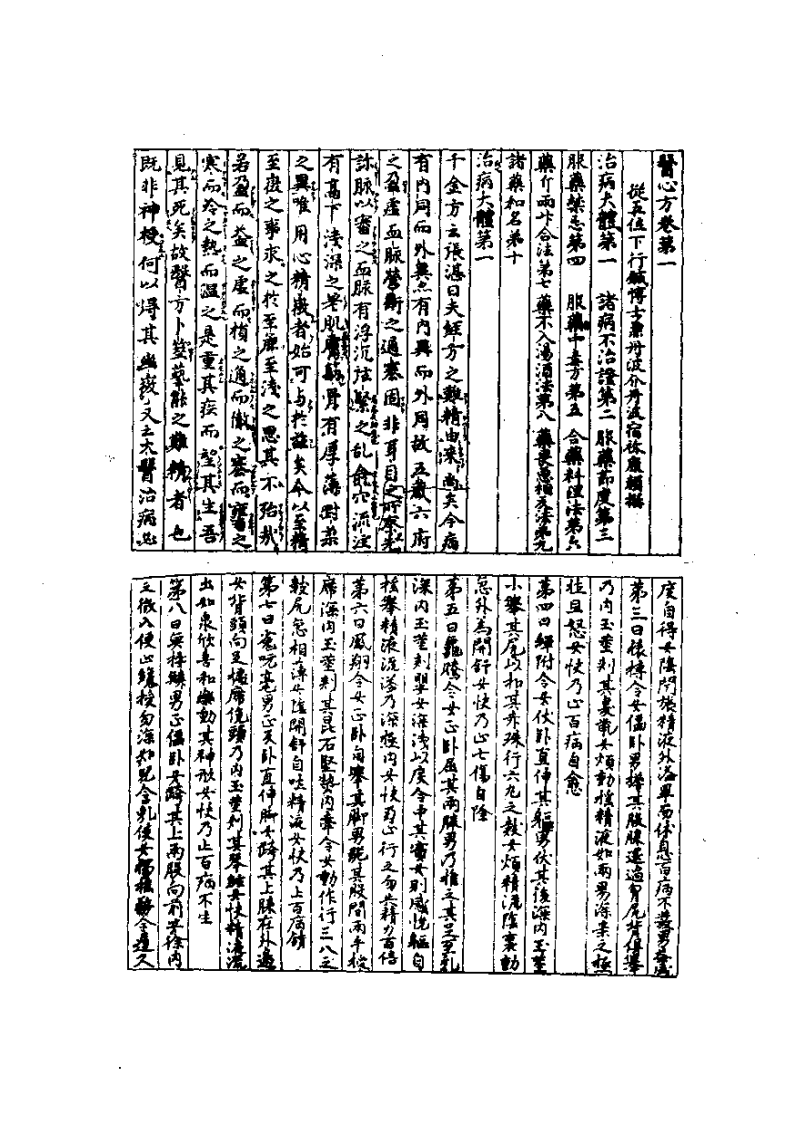 醫心方卷第一
從五位下行鍼博士兼丹波介丹波宿祢康頼撰
治病大體第一 諸病不治證第二 服藥節度第三
服藥禁忌第四 服藥中毒方第五 合藥料理法第六
藥斤兩升合法第七 藥不入湯酒法第八 藥畏惡相反法第九
諸藥和名第十
治病大體第一
千金方云張湛曰夫經方之難精由來尚矣今病
有内同而外異亦有内異而外同故五藏六府
之盈虛血脉營衛之通塞固非耳目之所察先
診脉以審之而脉有浮沉弦緊之乱俞穴流注
有高下淺深之差肌膚筋骨有厚薄剛柔
之異唯用心精微者始可与於兹矣今以至精
至微之事求之於至麁至淺之思其不殆哉
若盈而益之虛而損之通而徹之塞而壅之
寒而冷之熱而溫之是重其疾而望其生吾
見其死矣故醫方卜筮藝能之難精者也
既非神授何以得其幽微又云大醫治病必
度自得女陰閇張精液外溢畢而休息百病不發男益盛
第三曰猨搏令女偃卧男擔其股膝還過胷尻背俱舉
乃内玉莖刺其臭鼠女煩動搖精液如雨男深案之極
壯且怒女快乃止百病自愈
第四曰蟬附令女伏卧直伸其軀男伏其後深内玉莖
小舉其尻以扣其赤珠行六九之數女煩精流陰裏動
急外為開舒女快乃止七傷自除
第五曰龜騰令女正卧屈其兩膝男乃推之其足至乳
深内玉莖刺嬰女深淺以度令中其實女則感悅軀自
搖舉精液流溢乃深極内女快乃止行之勿失精力百倍
第六曰鳳翔令女正卧自舉其脚男跪其股間兩手授
席深内玉莖刺其昆石堅熱内牽令女動作行三八之
數尻急相薄女陰開舒自吐精液女快乃止百病銷
第七曰兎吮毫男正反卧直伸脚女跨其上膝在外邊
女背頭向足據席俛頭乃内玉莖刺其琴絃女快精液流
出如泉欣喜和樂動其神形女快乃止百病不生
第八曰魚接鱗男正偃卧女跨其上兩股向前安徐内
之微入便止纔授勿深如兒含乳使女獨搖務令遲久